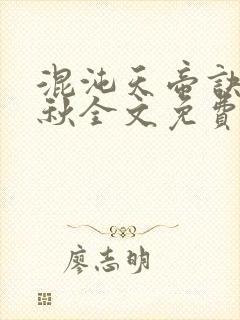 混沌天帝訣
秋全文免費
廖志明